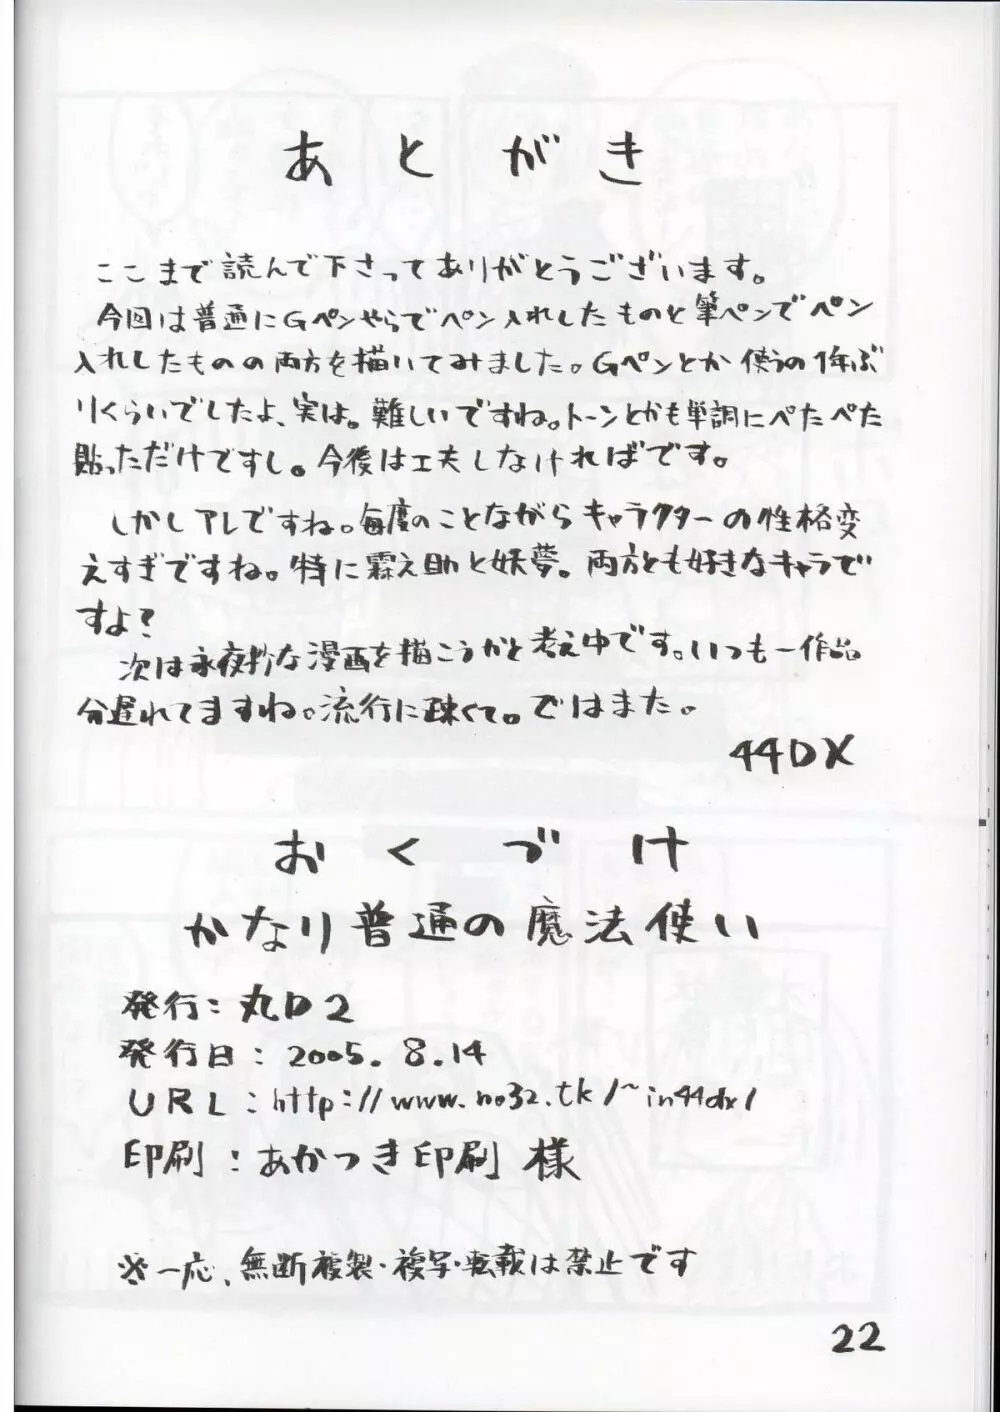 あとがき
ここまで読んで下さってありがとうございます。
今回は普通にGペンやらでペン入れしたものと筆ペンでペン
入れしたものの両方を描いてみました。Gペンとか使うの1年ぶ
りくらいでしたよ、実は。難しいですね。トーンとかも単調にぺたぺた
貼っただけですし。今後は工夫しなければです。
しかしアレですね。毎度のことながらキャラクターの性格変
えすぎですね。特に霖之助と妖夢。両方とも好きなキャラで
すよ?
次は永夜抄な漫画を描こうかと考え中です。いつも一作品
分遅れてますね。流行に疎くて。ではまた。
44DX
おくづけ
かなり普通の魔法使い
発行:丸D2
発行日:2005.8.14
URL:http://www.no32.tk/~in44dx/
印刷:あかつき印刷 様
※一応、無断複製・複写・転載は禁止です
22